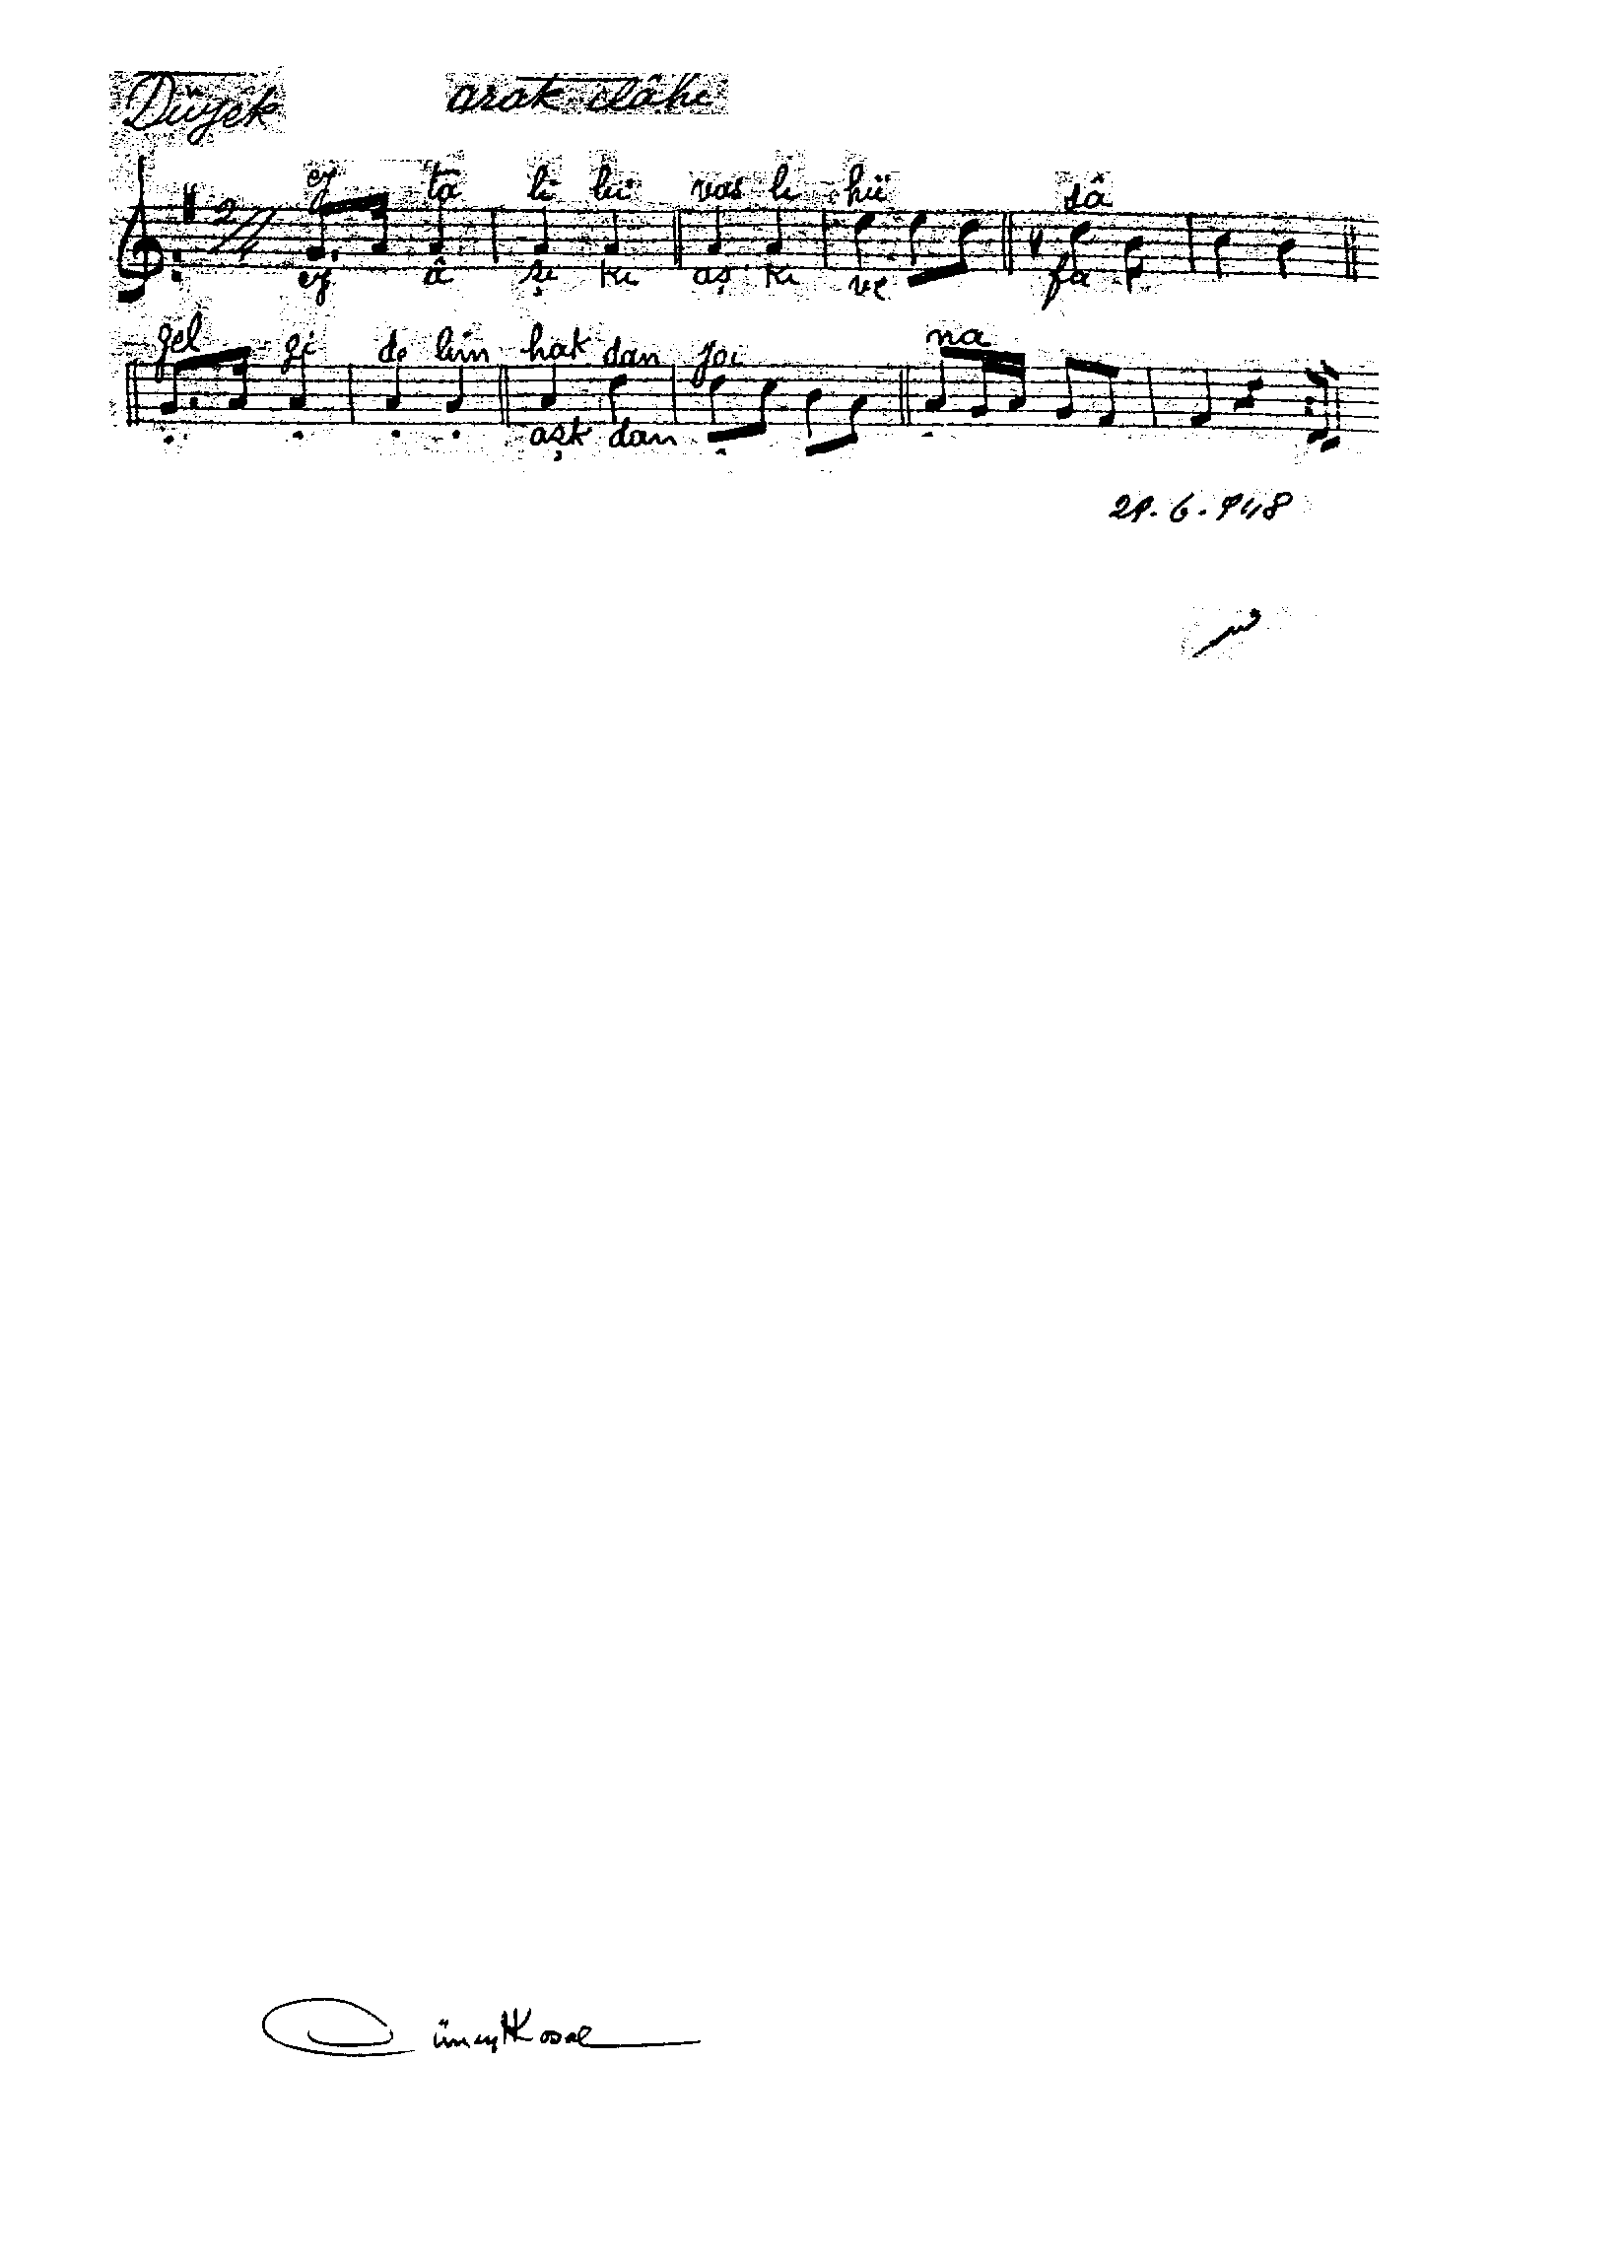 Düyek arak ilâhi
2/4
ey tâ li bi vas li hü dâ
ey â şı kı aş kı ve fa
gel gi de lim hak dan ya na
aşk dan
29.6.948
Cüneyt Kosal